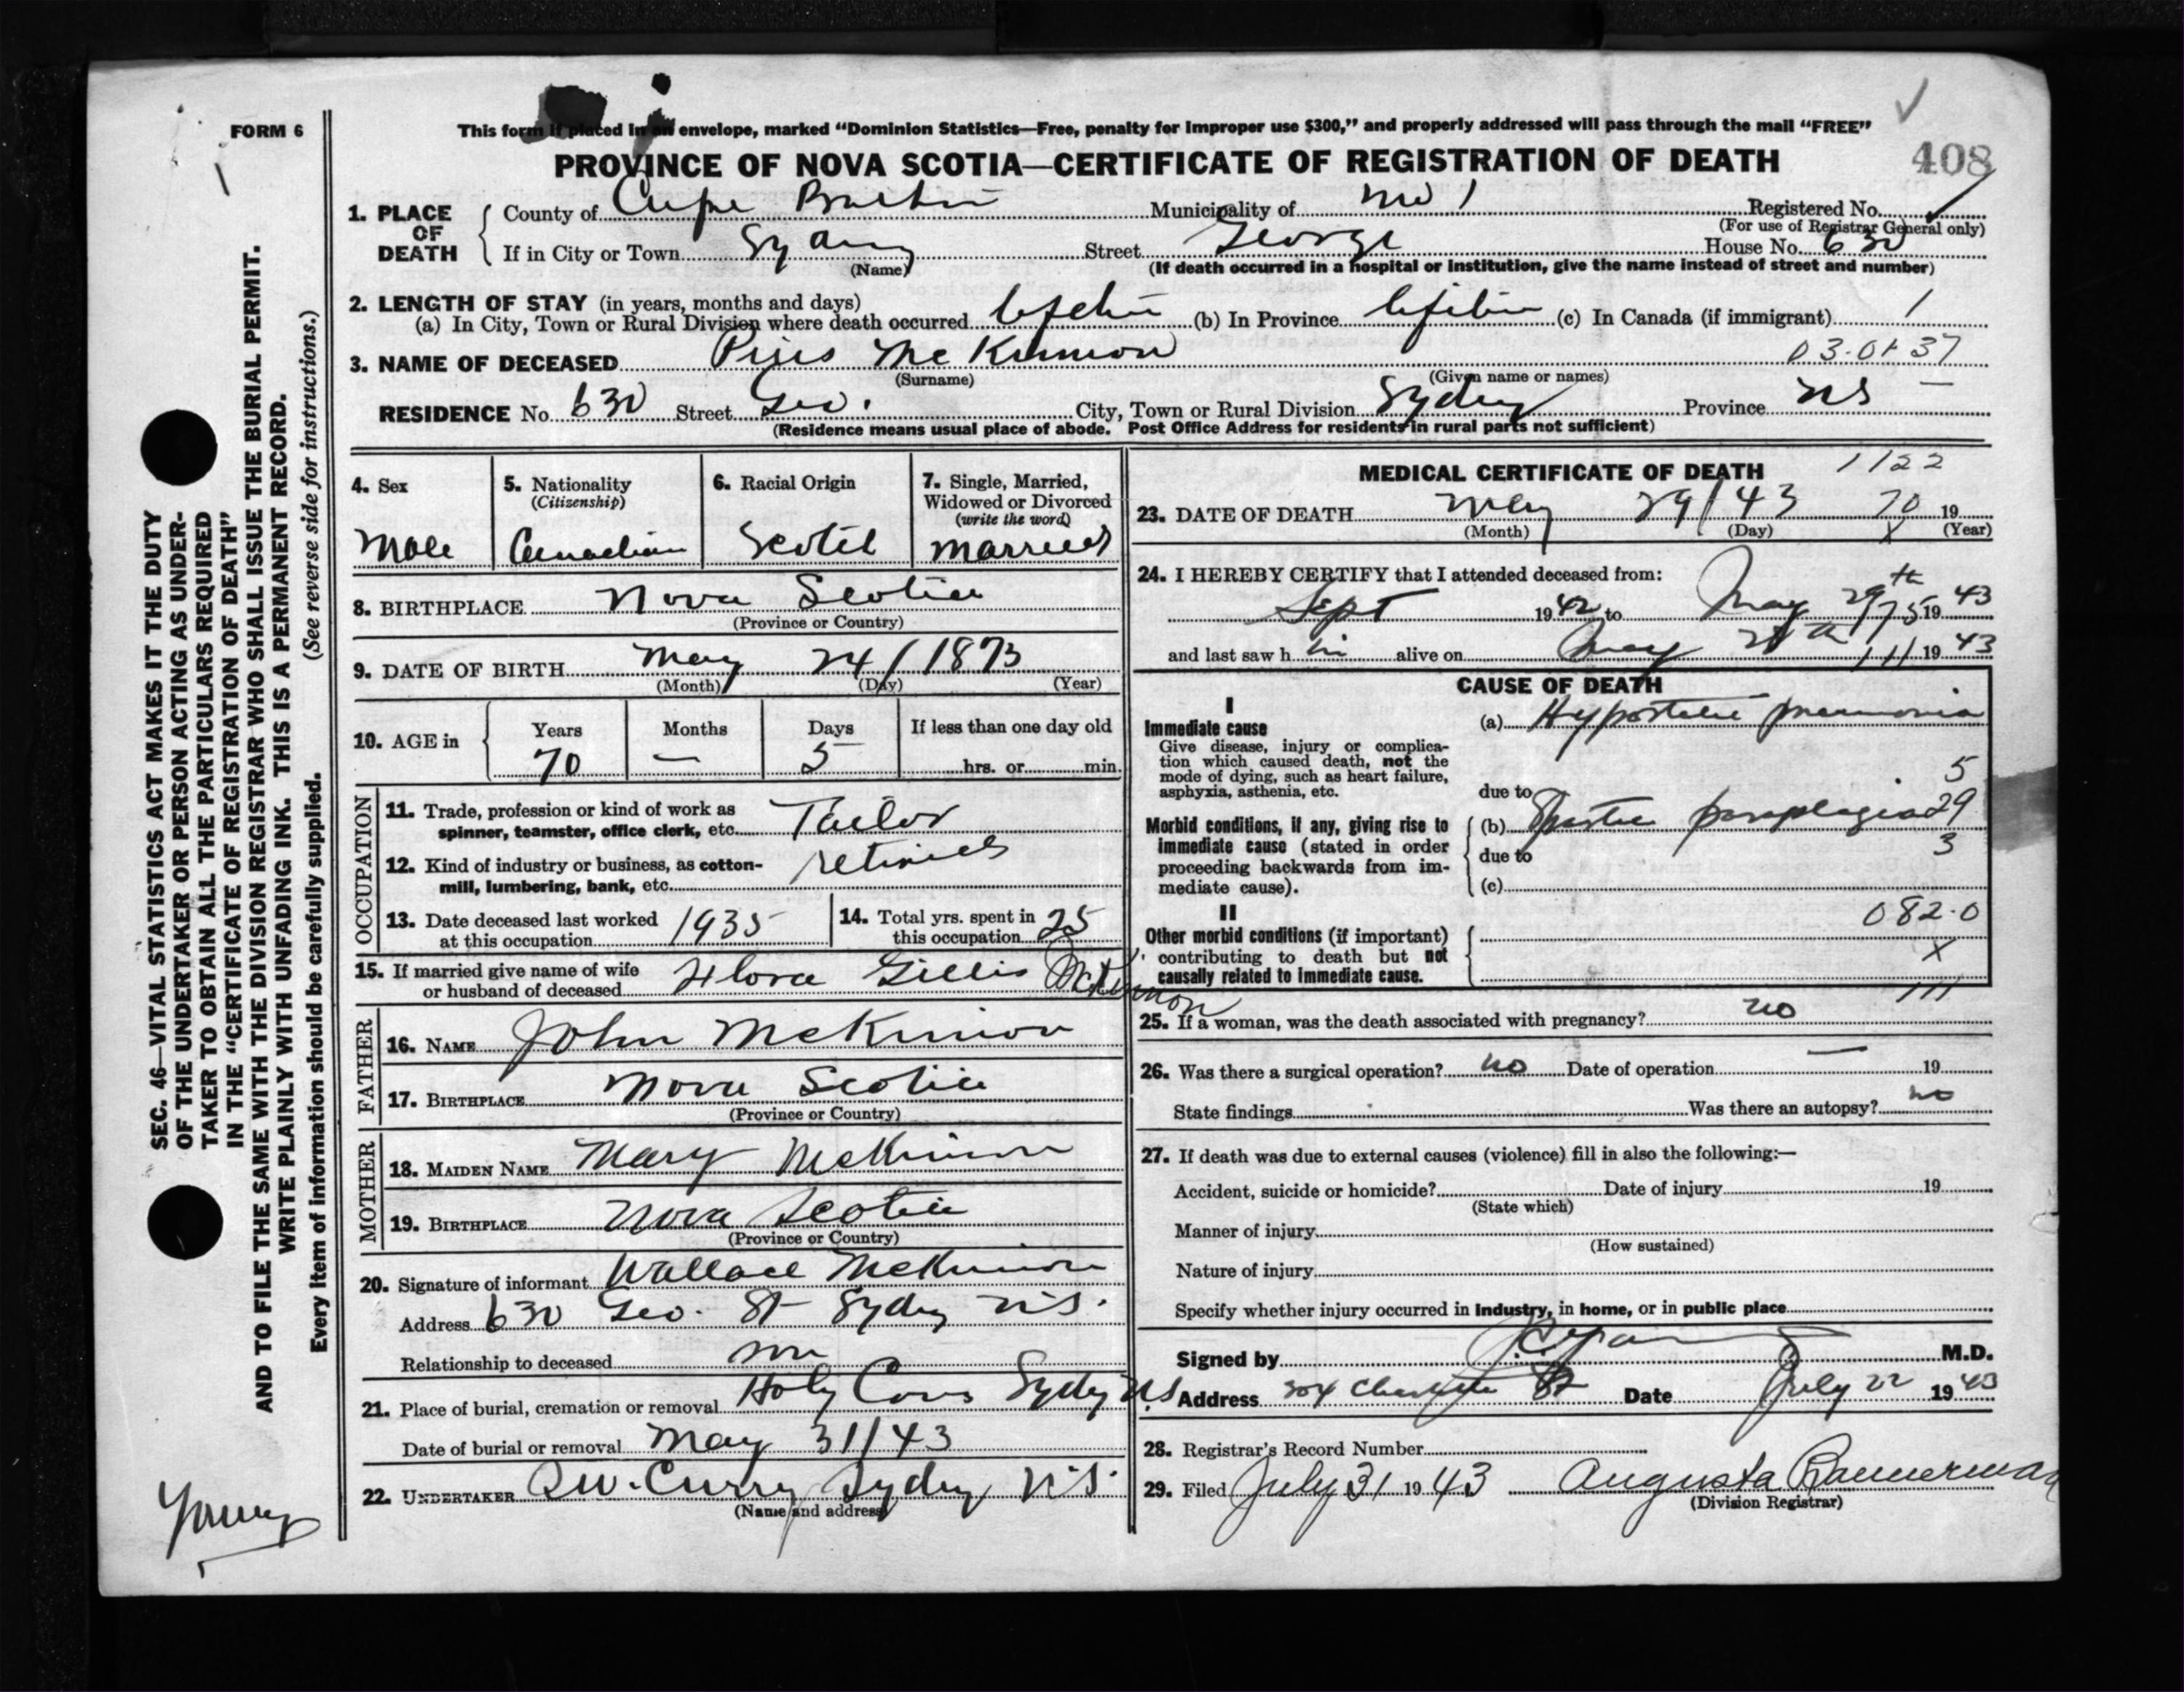 FORM 6
This form if placed in an envelope, marked "Dominion Statistics—Free, penalty for improper use $300," and properly addressed will pass through the mail "FREE"
PROVINCE OF NOVA SCOTIA—CERTIFICATE OF REGISTRATION OF DEATH
408
1. PLACE OF DEATH
County of Cape Breton Municipality of No 1 Registered No.
(For use of Registrar General only)
If in City or Town Sydney Street George House No. 630
(Name)
(If death occurred in a hospital or institution, give the name instead of street and number)
2. LENGTH OF STAY (in years, months and days)
(a) In City, Town or Rural Division where death occurred Lifetime (b) In Province Lifetime (c) In Canada (if immigrant) 1
3. NAME OF DECEASED Pius McKinnon 03-01 37
(Surname) (Given name or names)
RESIDENCE No. 630 Street Geo. City, Town or Rural Division Sydney Province NS —
(Residence means usual place of abode. Post Office Address for residents in rural parts not sufficient)
4. Sex
Male
5. Nationality
(Citizenship)
Canadian
6. Racial Origin
Scotch
7. Single, Married, Widowed or Divorced
(write the word)
Married
8. BIRTHPLACE Nova Scotia
(Province or Country)
9. DATE OF BIRTH May 24/1873
(Month) (Day) (Year)
10. AGE in
Years Months Days If less than one day old
70 — 5 hrs. or min.
OCCUPATION
11. Trade, profession or kind of work as
spinner, teamster, office clerk, etc. Tailor
12. Kind of industry or business, as cotton-
mill, lumbering, bank, etc. retired
13. Date deceased last worked
at this occupation 1935
14. Total yrs. spent in
this occupation 25
15. If married give name of wife
or husband of deceased Flora Gillis McKinnon
FATHER
16. NAME John McKinnon
17. BIRTHPLACE Nova Scotia
(Province or Country)
MOTHER
18. MAIDEN NAME Mary McKinnon
19. BIRTHPLACE Nova Scotia
(Province or Country)
20. Signature of informant Wallace McKinnon
Address 630 Geo. St Sydney N.S.
Relationship to deceased son
21. Place of burial, cremation or removal Holy Cross Sydney N.S
Date of burial or removal May 31/43
22. UNDERTAKER Curry Sydney N.S.
(Name and address)
MEDICAL CERTIFICATE OF DEATH 1122
23. DATE OF DEATH May 29/43 70 19
(Month) (Day) X (Year)
24. I HEREBY CERTIFY that I attended deceased from:
Sept 1942 to May 29th 75 1943
and last saw him alive on May th 111 1943
CAUSE OF DEATH
I
Immediate cause
Give disease, injury or complica-
tion which caused death, not the
mode of dying, such as heart failure,
asphyxia, asthenia, etc.
(a) Hypostatic pneumonia
5
due to
Morbid conditions, if any, giving rise to
immediate cause (stated in order
proceeding backwards from im-
mediate cause).
(b) Spastic paraplegia 29
due to 3
(c)
II
082.0
Other morbid conditions (if important)
contributing to death but not
causally related to immediate cause.
X
111
25. If a woman, was the death associated with pregnancy? no
26. Was there a surgical operation? no Date of operation — 19
State findings Was there an autopsy? no
27. If death was due to external causes (violence) fill in also the following:—
Accident, suicide or homicide? Date of injury 19
(State which)
Manner of injury
(How sustained)
Nature of injury
Specify whether injury occurred in industry, in home, or in public place
Signed by M.D.
Address 304 Charlotte St Date July 22 1943
28. Registrar's Record Number
29. Filed July 31 1943 Augusta Bannerman
(Division Registrar)
SEC. 46—VITAL STATISTICS ACT MAKES IT THE DUTY
OF THE UNDERTAKER OR PERSON ACTING AS UNDER-
TAKER TO OBTAIN ALL THE PARTICULARS REQUIRED
IN THE "CERTIFICATE OF REGISTRATION OF DEATH"
AND TO FILE THE SAME WITH THE DIVISION REGISTRAR WHO SHALL ISSUE THE BURIAL PERMIT.
WRITE PLAINLY WITH UNFADING INK. THIS IS A PERMANENT RECORD.
Every item of information should be carefully supplied. (See reverse side for instructions.)